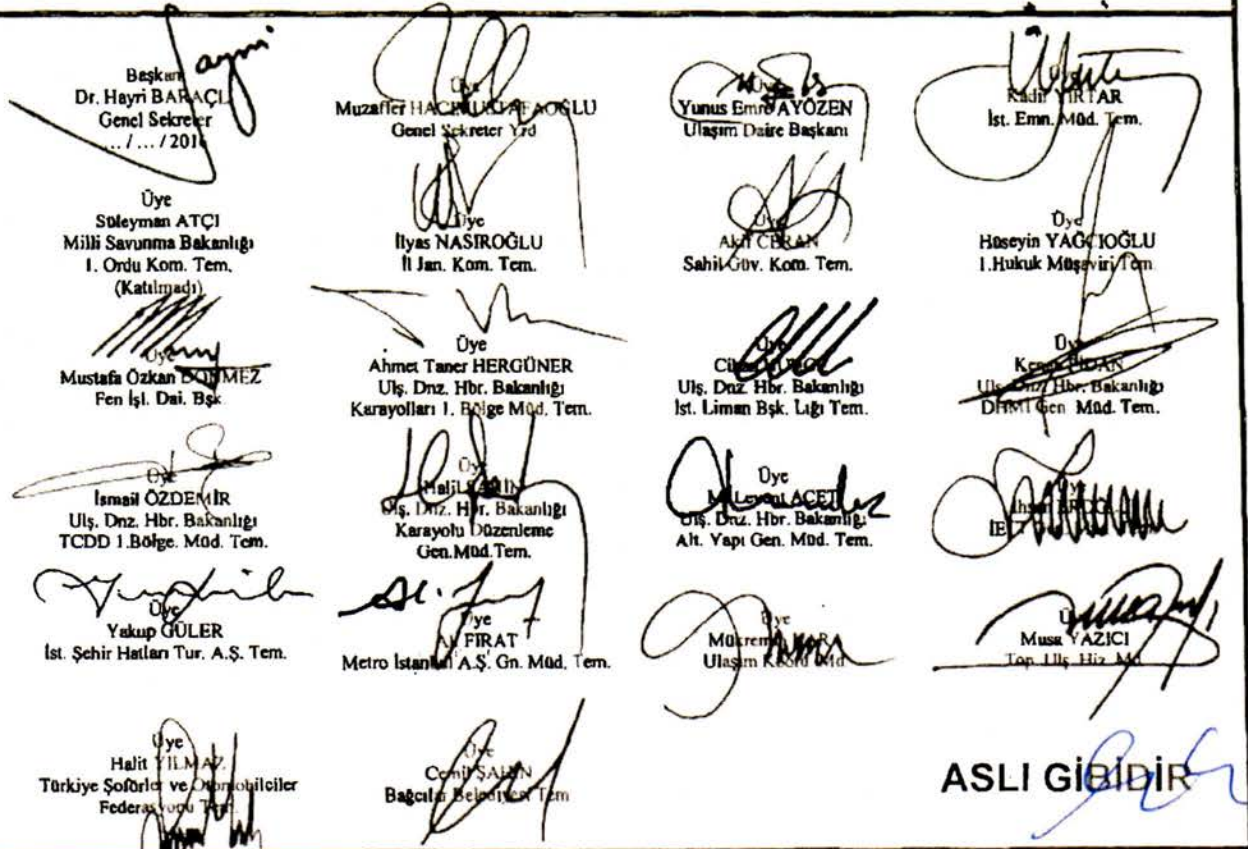 Başkan
Dr. Hayri BARAÇLI
Genel Sekreter
... / ... / 2016
Üye
Muzaffer HACIMUSTAFAOĞLU
Genel Sekreter Yrd
Üye
Yunus Emre AYÖZEN
Ulaşım Daire Başkanı
Üye
Kadir YIRTAR
İst. Emn. Müd. Tem.
Üye
Süleyman ATÇI
Milli Savunma Bakanlığı
1. Ordu Kom. Tem.
(Katılmadı)
Üye
İlyas NASIROĞLU
İl Jan. Kom. Tem.
Üye
Akif CERAN
Sahil Güv. Kom. Tem.
Üye
Hüseyin YAĞCIOĞLU
1.Hukuk Müşaviri Tem.
Üye
Mustafa Özkan DÖNMEZ
Fen İşl. Dai. Bşk.
Üye
Ahmet Taner HERGÜNER
Ulş. Dnz. Hbr. Bakanlığı
Karayolları 1. Bölge Müd. Tem.
Üye
Ulş. Dnz. Hbr. Bakanlığı
İst. Liman Bşk. Lığı Tem.
Üye
Ulş. Dnz. Hbr. Bakanlığı
DHMİ Gen. Müd. Tem.
Üye
İsmail ÖZDEMİR
Ulş. Dnz. Hbr. Bakanlığı
TCDD 1.Bölge. Müd. Tem.
Üye
Halil ŞAHİN
Ulş. Dnz. Hbr. Bakanlığı
Karayolu Düzenleme
Gen.Müd.Tem.
Üye
Levent ACET
Ulş. Dnz. Hbr. Bakanlığı
Alt. Yapı Gen. Müd. Tem.
Üye
Üye
Yakup GÜLER
İst. Şehir Hatları Tur. A.Ş. Tem.
Üye
FIRAT
Metro İstanbul A.Ş. Gn. Müd. Tem.
Üye
Mükremin KARA
Ulaşım Koord. Md
Üye
Musa YAZICI
Top. Ulş. Hiz. Md.
Üye
Halit YILMAZ
Türkiye Şoförler ve Otomobilciler
Federasyonu Tem.
Üye
Cemil ŞAHİN
Bağcılar Belediyesi Tem
ASLI GİBİDİR